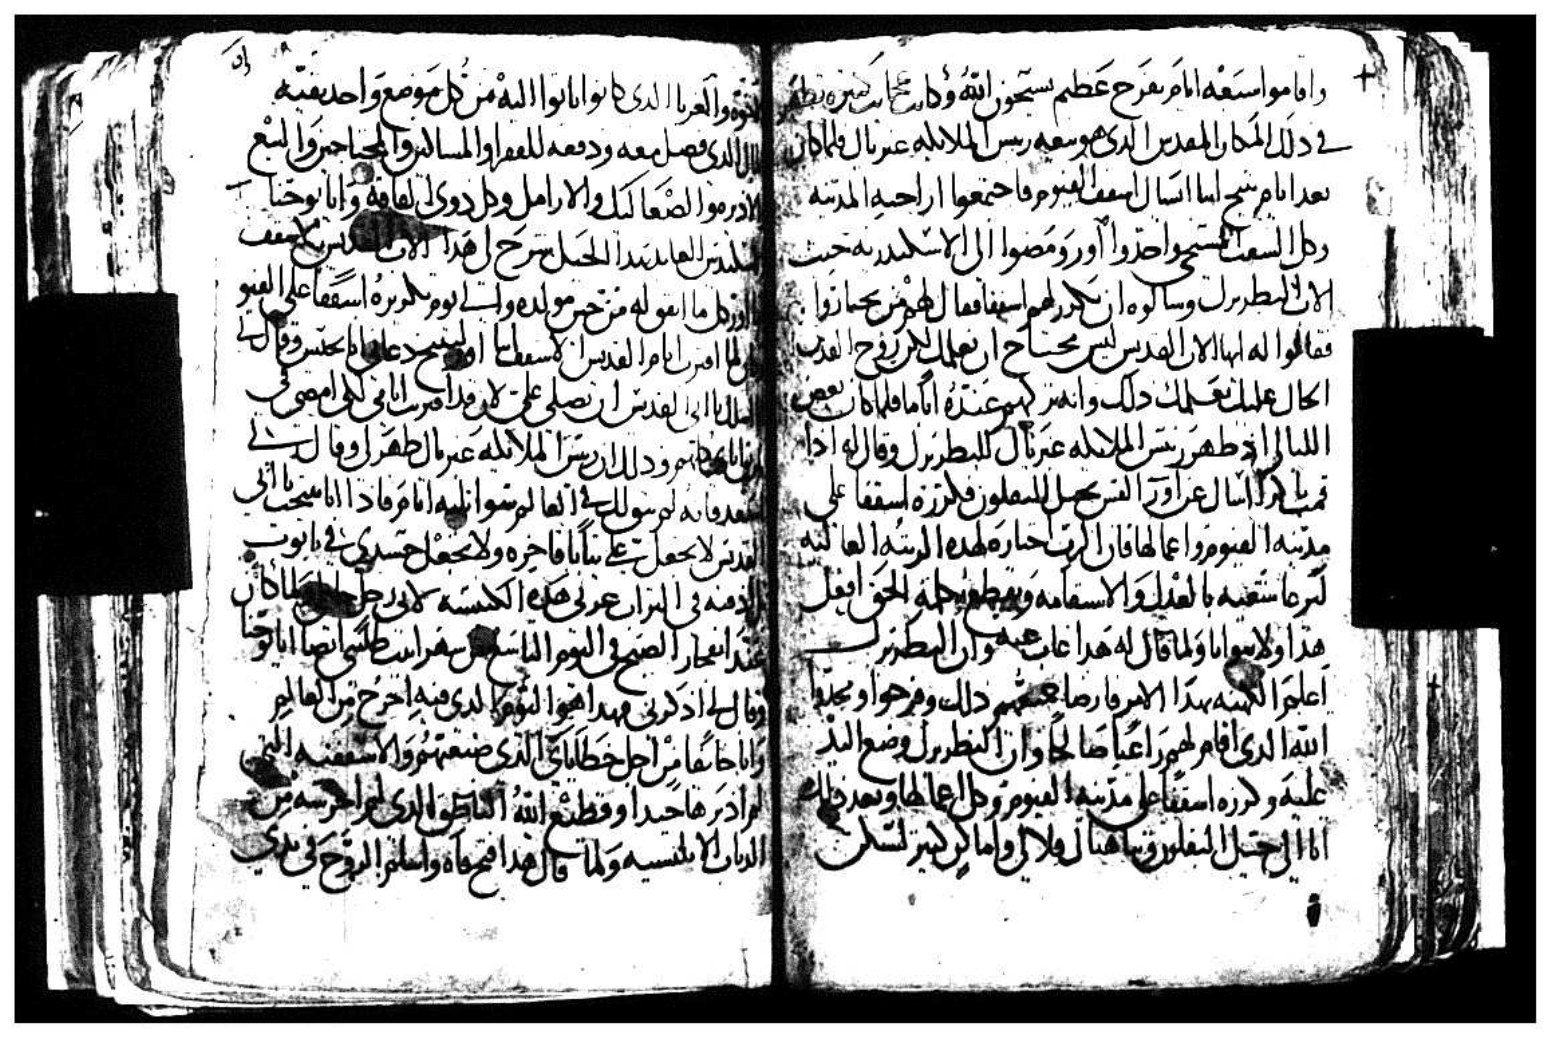 واقاموا سبعه ايام بفرح عظيم يسبحون الله وكانت عجايب كثيره تظهر
في ذلك المكان المقدس الذي هو بيعه رييس الملايكه غبريال فلما كان
بعد ايام تنيح انبا اسال اسقف الفيوم فاجتمعوا اراخنه المدينه
وكل الشعب المسيحي واخذوا اور ومضوا الي الاسكندريه حيث
الاب البطريرك وسالوه ان يكرز لهم اسقفا فقال لهم من تختاروا
فقالوا له ايها الاب القديس ليس نحتاج ان نعلمك لكن روح القدس
الحال عليك يعلمك ذلك وانه تركهم عنده اياما فلما كان بعض
الليالي اذ ظهر رييس الملايكه غبريال للبطريرك وقال له اذا
قمت باكر اسال عن اور القس بجبل النقلون فكرزه اسقفا علي
مدينه الفيوم واعمالها فان الرب اختاره لهذه الرتبه العاليه
ليرعا شعبه بالعدل والاستقامه كلمة الحق افعل
هذا ولا تتوانا ولما قال له هذا غاب عنه وان البطريرك
اعلم الكهنه بهذا الامر فارضا جميعهم ذلك وفرحوا ومجدوا
الله الذي اقام لهم راعيا صالحا وان البطريرك وضع اليد
عليه وكرزه اسقفا علي مدينه الفيوم وكل اعمالها وبعد ذلك
اتا الي جبل النقلون وبنا هناك قلالي واماكن كثير لتسكن
الاخوه والغربا الذي كانوا ياتوا اليه من كل موضع واحد بقيه
المال الذي فضل معه ودفعه للفقرا والمساكين والمحتاجين والبيع
الاخر مع الصعاليك والارامل وكل ذوي الفاقه وانا يوحنا
العابد بهذا الجبل شرح لي هذا الاب القديس الاسقف
اور كل ما اتفق له من حين مولده والي يوم تكريزه اسقفا علي الفيوم
ولما اقترب ايام القديس الاسقف انبا اور ليتنيح دعاني انا يحنس وقال لي
اسالك يا ابي القديس ان تصلي علي لان قد اقتربت ايامي لكي امضي الي
وذلك ان رييس الملايكه غبريال ظهر لي وقال لي
استعد فانه لم يبق لك في العالم سوا ثلثه ايام فاذا انا تنيحت يا ابي
القديس لا تجعل علي ثيابا فاخره ولا تجعل جسدي في تابوت
ادفنه في التراب عند هذه الكنيسه لاني رجل ولما كان
عند انفجار الصبح في اليوم التاسع من شهر ايضا انا يوحنا
وقال لي اذكرني فهذا هو اليوم الذي فيه اخرج من العالم
وانا خايفا من اجل خطاياي الذي صنعتهم والاسقفيه التي
لم ادبرها جيدا وقطيع الله الناطق الذي لم احرسه من
الدياب الابليسيه ولما قال هذا فتح فاه واسلم الروح في يدي